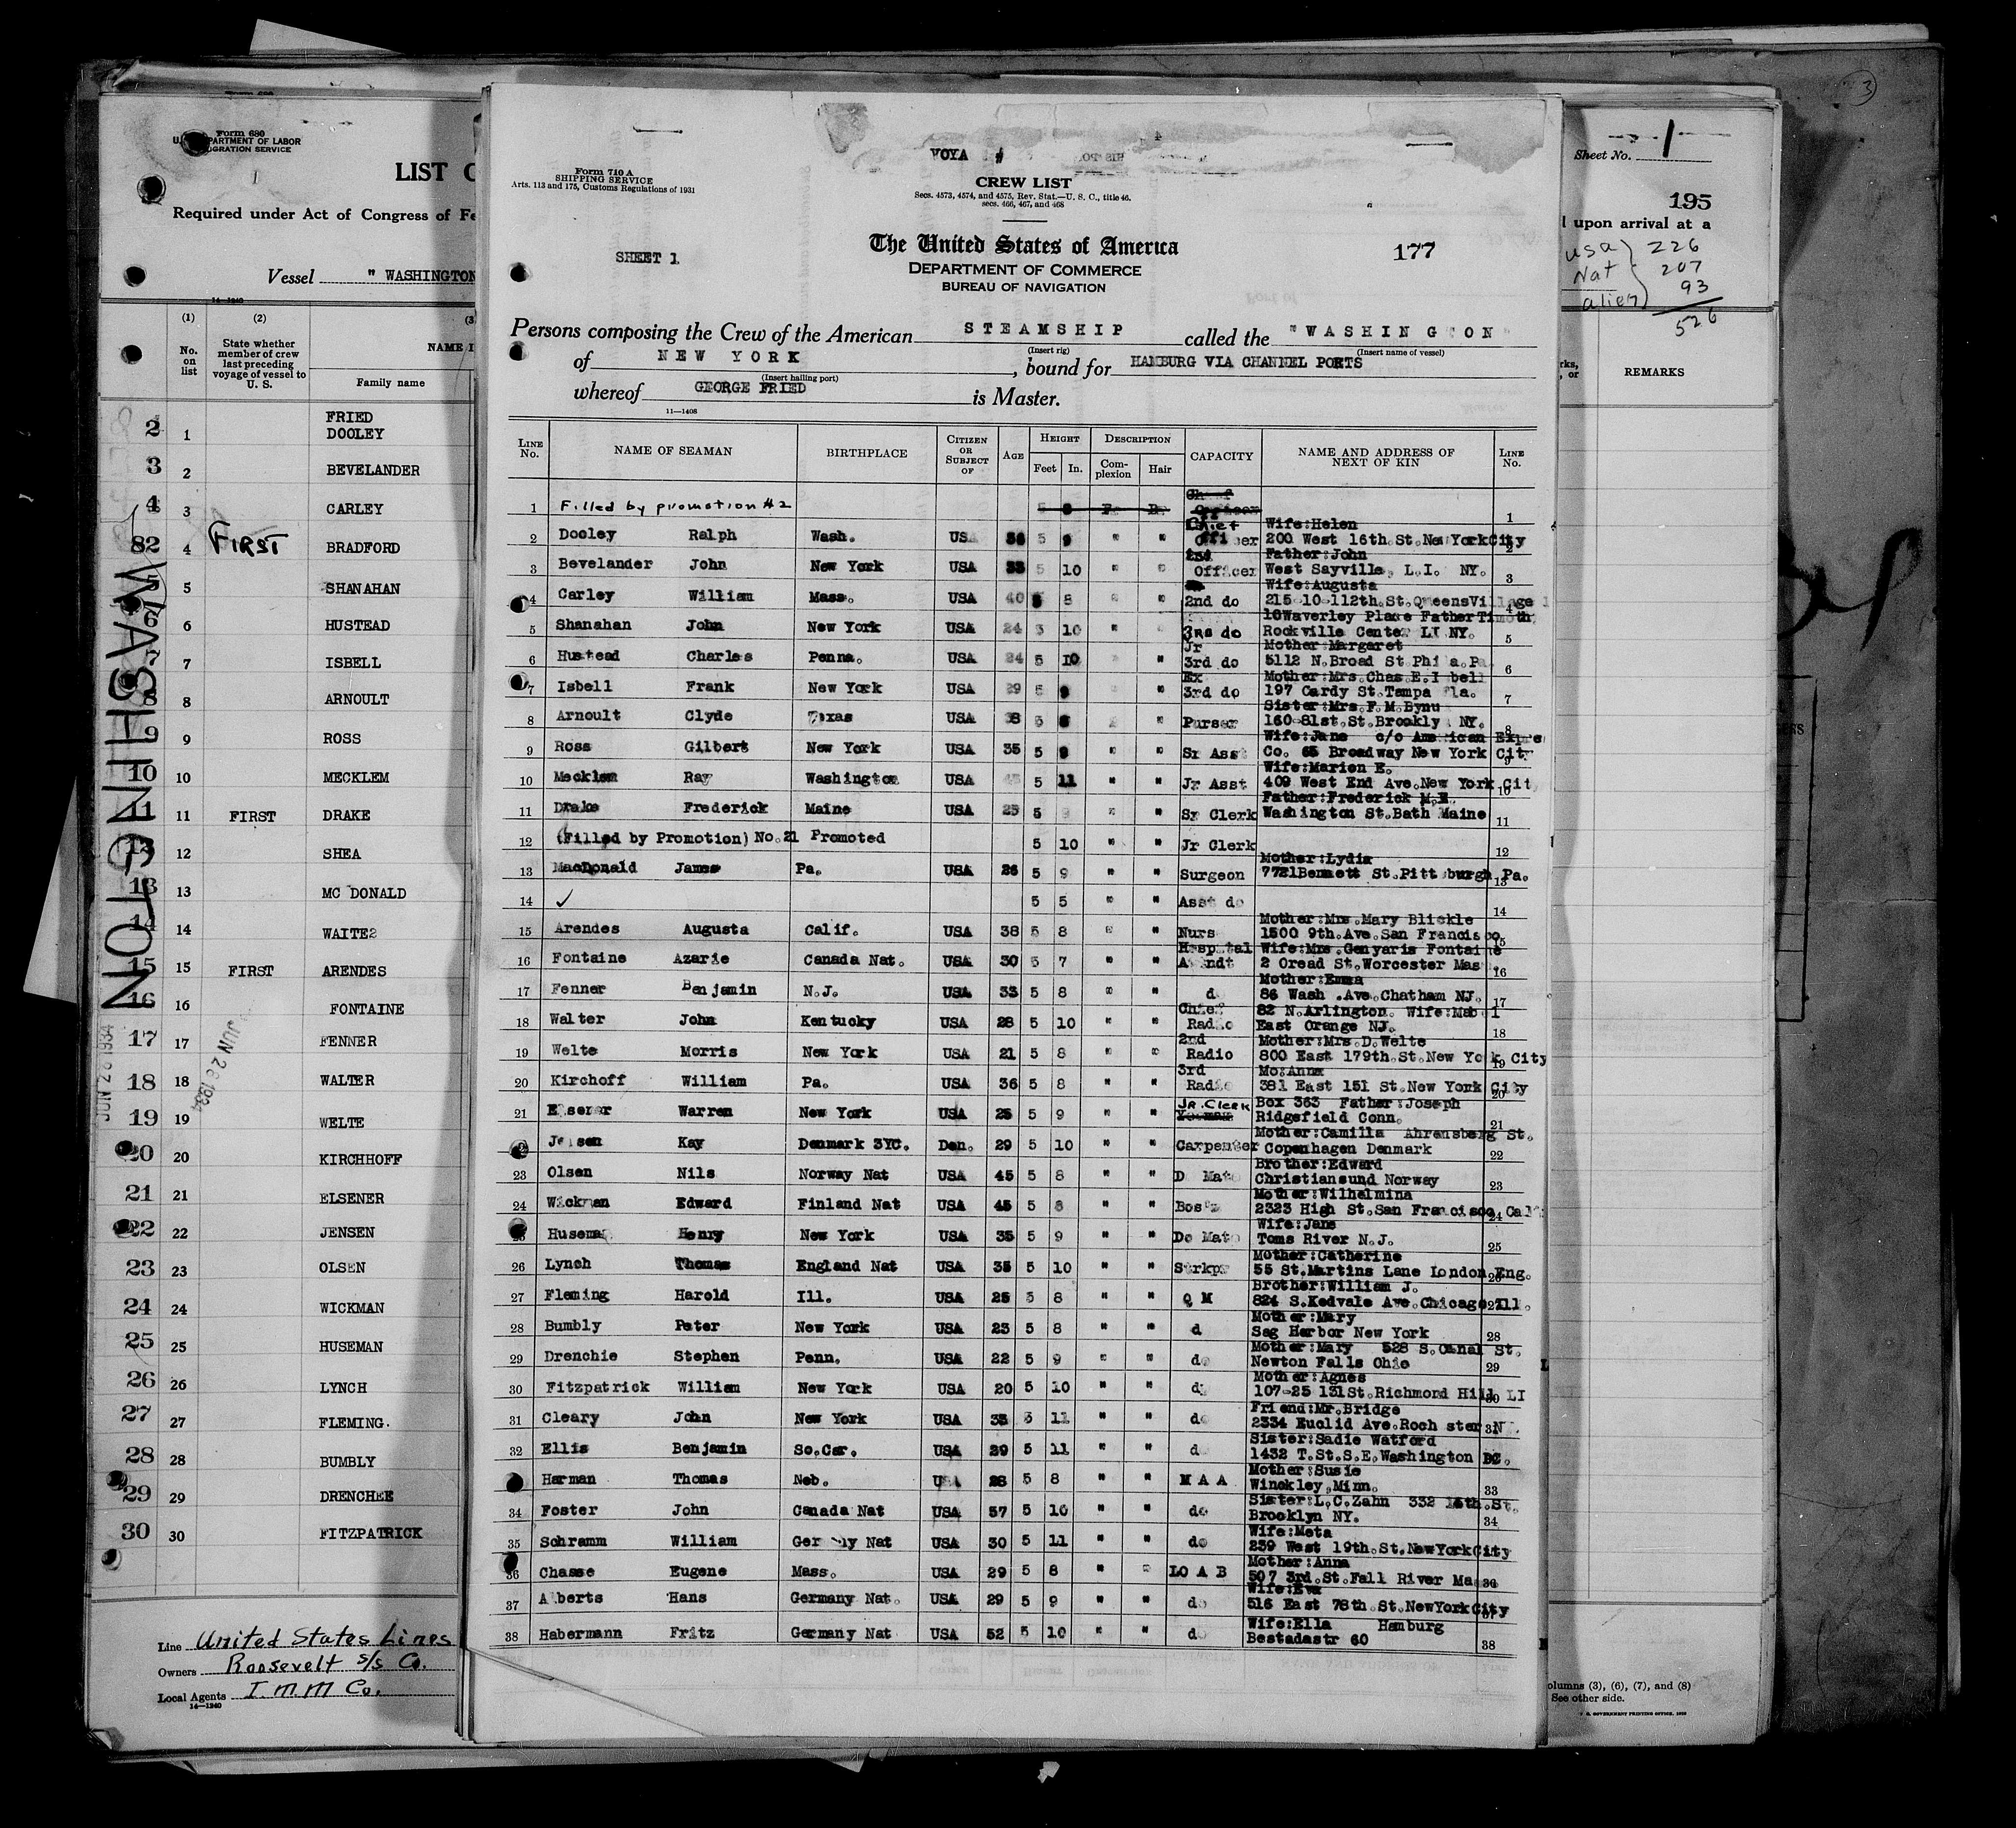 3
Form 680
U. DEPARTMENT OF LABOR
IMMIGRATION SERVICE
LIST
Required under Act of Congress of Fe
Vessel " WASHINGTON
14—1240
(1) (2) (3
No. on list
State whether member of crew last preceding voyage of vessel to U. S.
NAME I
Family name
FRIED
2 1 DOOLEY
3 2 BEVELANDER
4 3 CARLEY
82 4 FIRST BRADFORD
5 5 SHANAHAN
6 6 HUSTEAD
7 7 ISBELL
8 8 ARNOULT
9 9 ROSS
10 10 MECKLEM
11 11 FIRST DRAKE
12 12 SHEA
13 13 MC DONALD
14 14 WAITE
15 15 FIRST ARENDES
16 16 FONTAINE
17 17 FENNER
18 18 WALTER
19 19 WELTE
20 20 KIRCHHOFF
21 21 ELSENER
22 22 JENSEN
23 23 OLSEN
24 24 WICKMAN
25 25 HUSEMAN
26 26 LYNCH
27 27 FLEMING.
28 28 BUMBLY
29 29 DRENCHEE
30 30 FITZPATRICK
WASHINGTON
JUN 26 1934
JUN 26 1934
Line United States Lines
Owners Roosevelt s/s Co.
Local Agents I.M.M Co.
14—1240
VOYA #
Form 710 A
SHIPPING SERVICE
Arts. 113 and 175, Customs Regulations of 1931
CREW LIST
Secs. 4573, 4574, and 4575, Rev. Stat.—U. S. C., title 46.
secs. 466, 467, and 468
SHEET 1
The United States of America
177
DEPARTMENT OF COMMERCE
BUREAU OF NAVIGATION
Persons composing the Crew of the American STEAMSHIP called the "WASHINGTON"
(Insert rig) (Insert name of vessel)
of NEW YORK, bound for HAMBURG VIA CHANNEL PORTS
(Insert hailing port)
whereof GEORGE FRIED is Master.
11—1408
LINE No. NAME OF SEAMAN BIRTHPLACE CITIZEN OR SUBJECT OF AGE HEIGHT DESCRIPTION CAPACITY NAME AND ADDRESS OF NEXT OF KIN LINE No.
Feet In. Complexion Hair
1 Filled by promotion #2 1
Chief Wife:Helen
2 Dooley Ralph Wash. US 5 9 " " Officer 200 West 16th.St.NewYorkCity 2
Father:John
3 Bevelander John New York USA 33 5 10 " " Officer West Sayville, L.I. NY. 3
Wife:Augusta
4 Carley William Mass. USA 40 5 8 " 2nd do 215-10-112th.St.QueensVillage 4
16Waverley Place FatherTimoth
5 Shanahan John New York USA 24 5 10 " 3rd do Rockville Center LI NY. 5
Jr Mother Margaret
6 Hustead Charles Penna. USA 24 5 10 " 3rd do 5112 N.Broad St Phila.Pa 6
Ex Mother:Mrs.Chas.E.I bell
7 Isbell Frank New York USA 29 5 9 " 3rd do 197 Cardy St.Tampa Fla. 7
Sister:Mrs.F.M.Bynu
8 Arnoult Clyde Texas USA 38 5 " Purser 160-81st.St.Brookly NY. 8
Wife:Jane c/o American Expre
9 Ross Gilbert New York USA 35 5 9 " " Sr Asst Co. 65 Broadway New York City 9
Wife:Marion E.
10 Mecklem Ray Washington USA 5 11 " " Jr Asst 409 West End Ave.New York Cit 10
Father:Frederick M.E.
11 Drake Frederick Maine USA 25 5 9 " " Sr Clerk Washington St.Bath Maine 11
12 (Filled by Promotion) No.21 Promoted 5 10 " " Jr Clerk 12
Mother:Lydia
13 MacDonald James Pa. USA 26 5 9 " " Surgeon 7721Bennett St.Pittsburgh Pa. 13
14 ✓ 5 5 " " Asst do 14
Mother:Mrs.Mary Blickle
15 Arendes Augusta Calif. USA 38 5 8 " " Nurs 1500 9th.Ave.San Francisco 15
Hospital Wife:Mrs.Genyaris Fontaine
16 Fontaine Azarie Canada Nat. USA 30 5 7 " " A ndt 2 Oread St.Worcester Mas 16
Mother:Emma
17 Fenner Benjamin N.J. USA 33 5 8 " " d 86 Wash .Ave.Chatham NJ. 17
Chief 82 N.Arlington. Wife:Mabel
18 Walter John Kentucky USA 28 5 10 " " Radio East Orange NJ. 18
2nd Mother:Mrs.D.Welte
19 Welte Morris New York USA 21 5 8 " " Radio 800 East 179th.St.New York City 19
3rd Mo:Anna
20 Kirchoff William Pa. USA 36 5 8 " " Radio 381 East 151 St.New York City 20
Jr. Clerk Box 363 Father:Joseph
21 Elsener Warren New York USA 25 5 9 " " Yeoman Ridgefield Conn. 21
Mother:Camilla Ahrensberg St.
Jensen Kay Denmark 3YC. Den. 29 5 10 " " Carpenter Copenhagen Denmark 22
Brother:Edward
23 Olsen Nils Norway Nat USA 45 5 8 " " D Mate Christiansund Norway 23
Mother:Wilhelmina
24 Wickman Edward Finland Nat USA 45 5 8 " " Bosn 2323 High St.San Francisco Cal 24
Wife:Jane
Huseman Henry New York USA 35 5 9 " " De Mate Toms River N.J. 25
Mother:Catherine
26 Lynch Thomas England Nat USA 35 5 10 " " Strkpr 55 St.Martins Lane London Eng. 26
Brother:William J.
27 Fleming Harold Ill. USA 25 5 8 " " Q M 824 S.Kedvale Ave.Chicago Ill. 27
Mother:Mary
28 Bumbly Peter New York USA 23 5 8 " " d Sag Harbor New York 28
Mother:Mary 528 S.Canal St.
29 Drenchie Stephen Penn. USA 22 5 9 " " do Newton Falls Ohio 29
Mother:Agnes
30 Fitzpatrick William New York USA 20 5 10 " " d 107-25 131St.Richmond Hill LI 30
Friend:Mr.Bridge
31 Cleary John New York USA 35 5 11 " " do 2334 Euclid Ave.Roch ster N . 31
Sister:Sadie Watford
32 Ellis Benjamin So.Car. USA 29 5 11 " " d 1432 T.St.S.E.Washington DC.
Mother:Susie
Harman Thomas Neb. USA 28 5 8 " " M A A Winckley,Minn. 33
Sister:L.C.Zahn 332 15th.St.
34 Foster John Canada Nat USA 57 5 10 " " do Brooklyn NY. 34
Wife:Meta
35 Schramm William Germany Nat USA 30 5 11 " " do 239 West 19th.St.NewYorkCity
Mother:Anna
36 Chasse Eugene Mass. USA 29 5 8 " " LO A B 507 3rd.St.Fall River Mass 36
Wife:Eva
37 Alberts Hans Germany Nat. USA 29 5 9 " " do 516 East 78th St.NewYorkCity 37
Wife:Ella Hamburg
38 Habermann Fritz Germany Nat USA 52 5 10 " " d Bestadastr 60 38
Sheet No. 1
195
l upon arrival at a
usa 226
Nat 207
alien 93
526
rks, or
REMARKS
olumns (3), (6), (7), and (8)
See other side.
U. S. GOVERNMENT PRINTING OFFICE